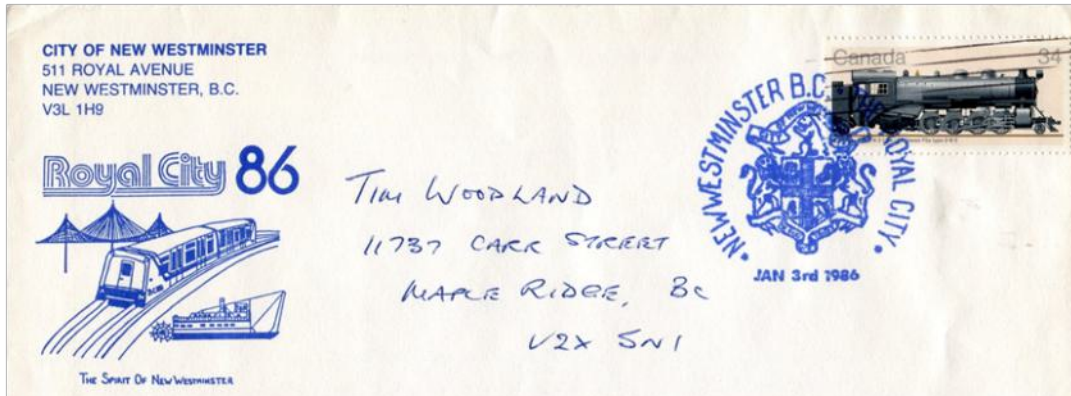 CITY OF NEW WESTMINSTER
511 ROYAL AVENUE
NEW WESTMINSTER, B.C.
V3L 1H9
Royal City 86
THE SPIRIT OF NEW WESTMINSTER
TIM WOODLAND
11737 CARR STREET
MAPLE RIDGE, BC
V2X 5N1
Canada 34
• NEW WESTMINSTER B.C. THE ROYAL CITY •
JAN 3rd 1986